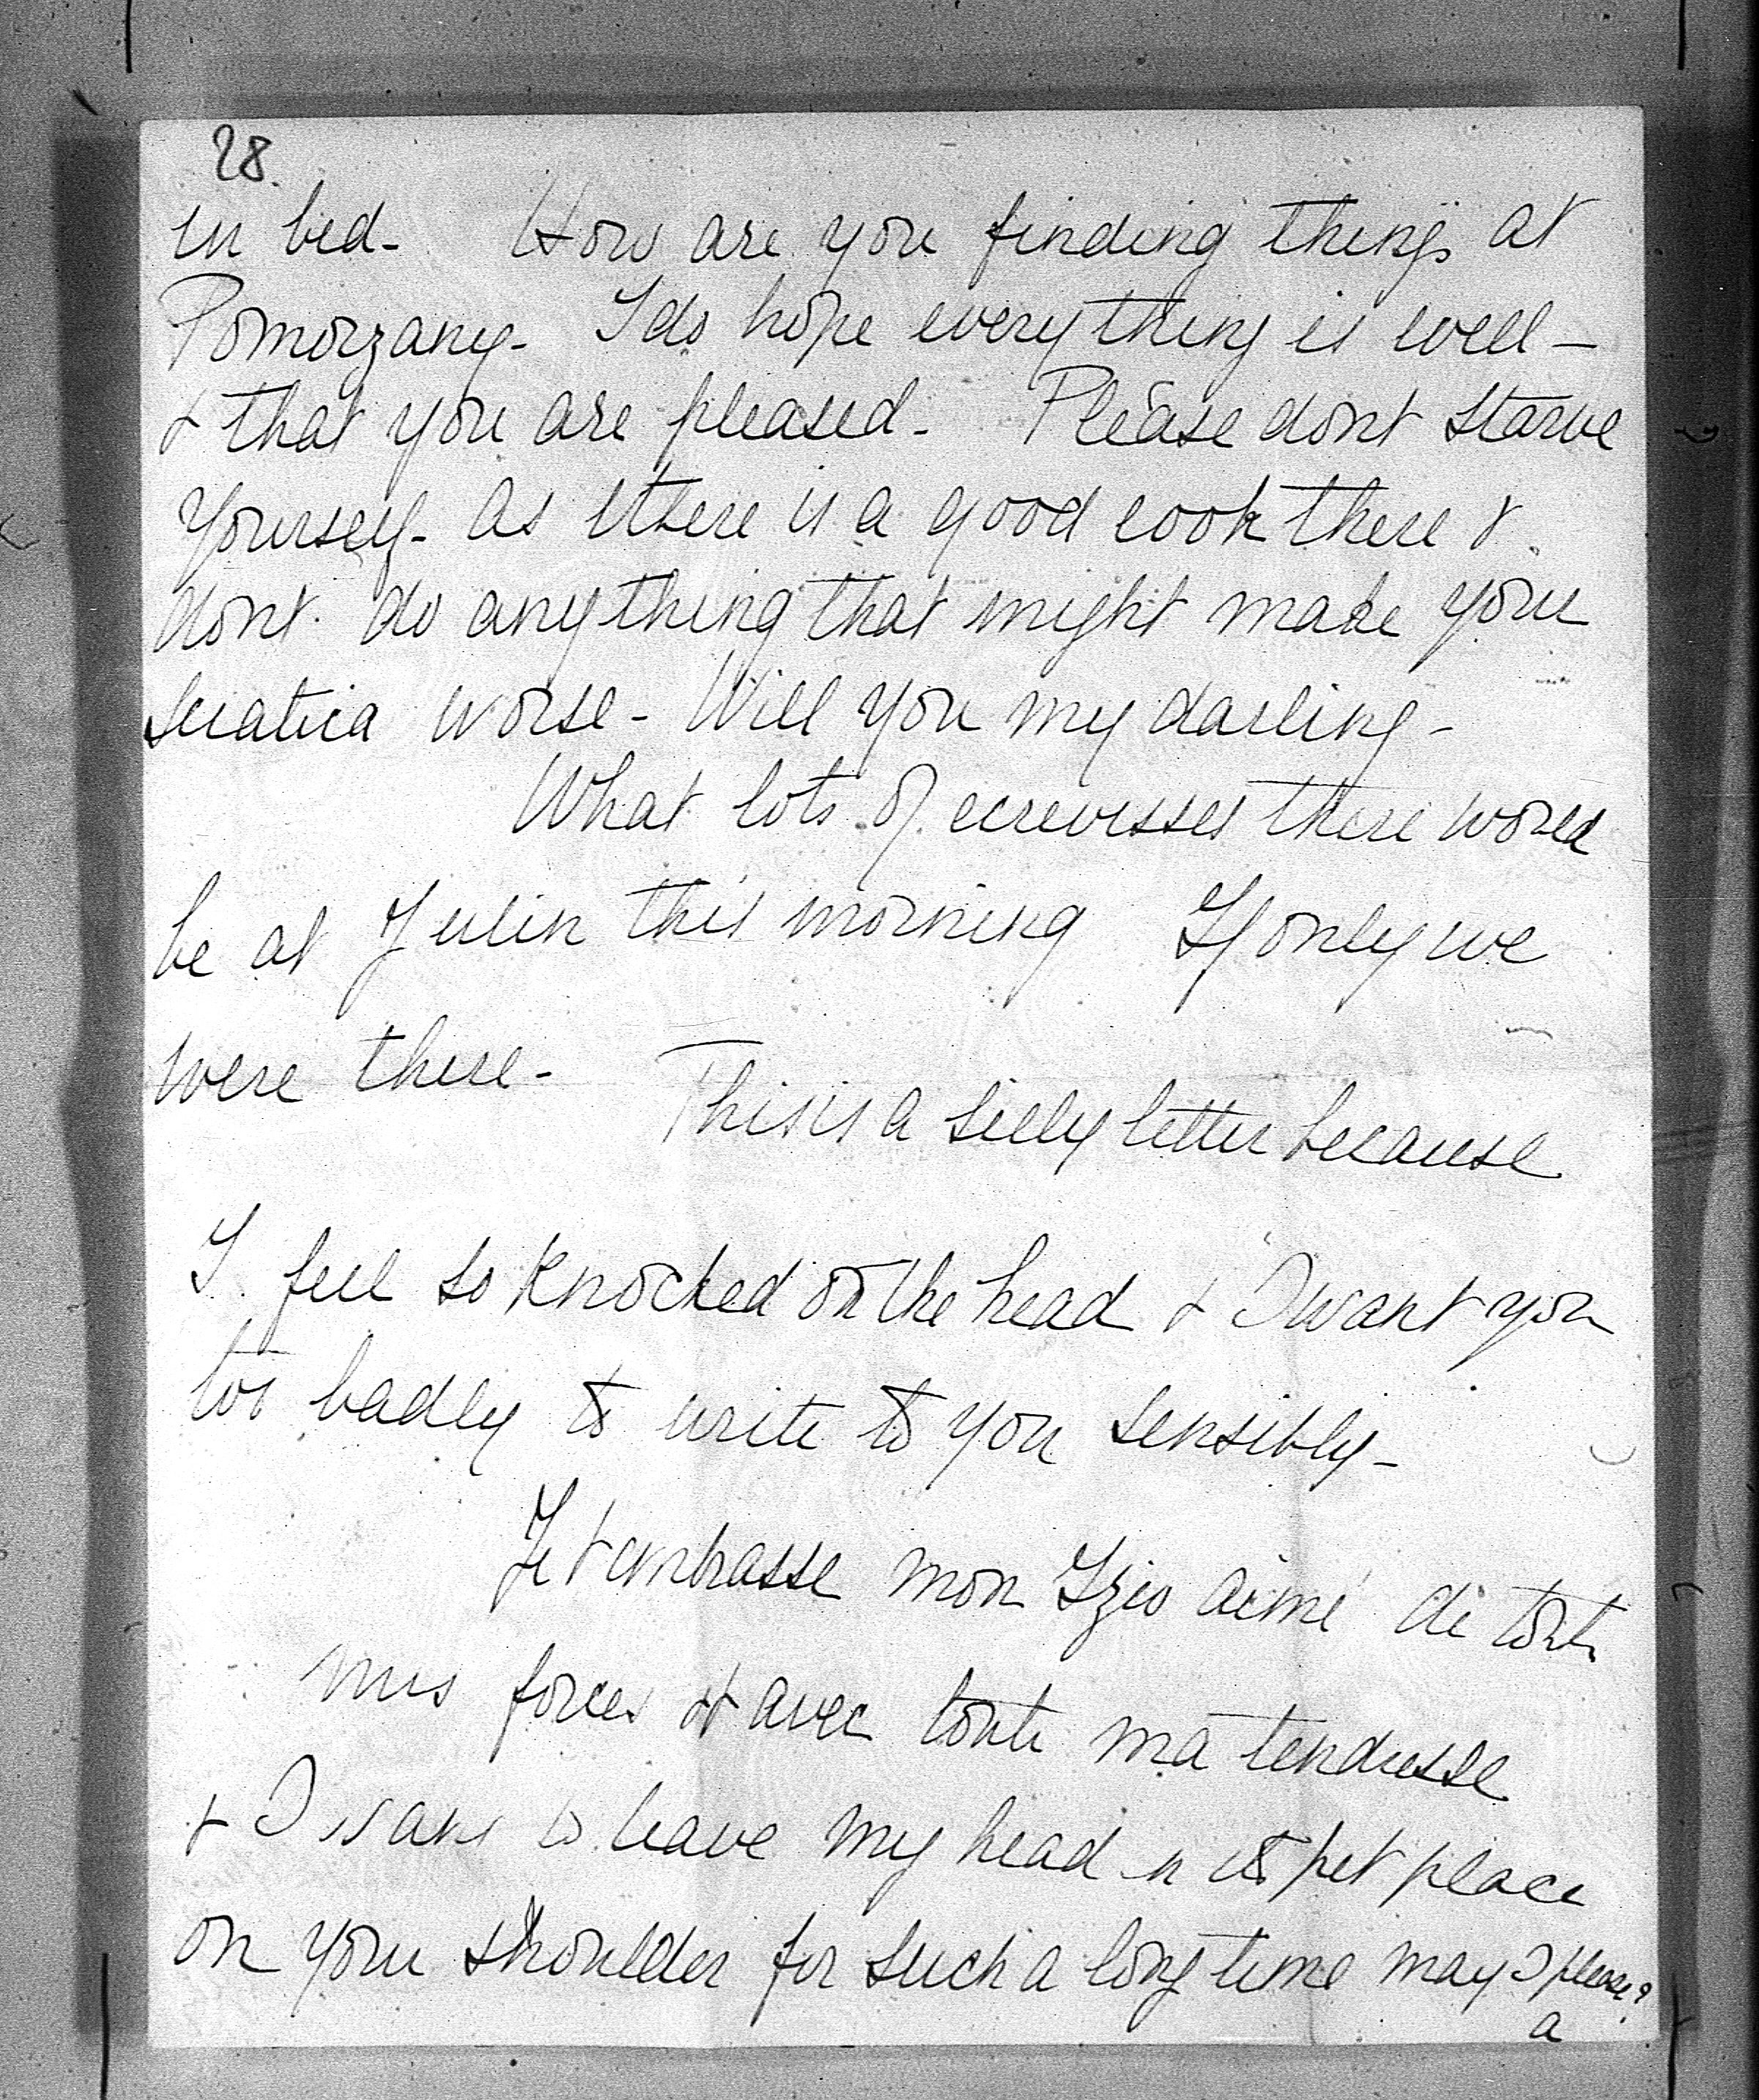 28.
in bed - How are you finding things at
Pomorzany - I do hope everything is well -
& that you are pleased - Please dont starve
yourself - as there is a good cook there &
dont do anything that might make your
sciatica worse - Will you my darling -
What lots of ecrevisses there would
be at Julin this morning If only we
were there - This is a silly letter because
I feel so knocked on the head & I want you
too badly to write to you sensibly -
Je t'embrasse mon Izio aimé de toute
mes forces et avec toute ma tendresse
& I want to leave my head in its pet place
on your shoulder for such a long time may I please?
a